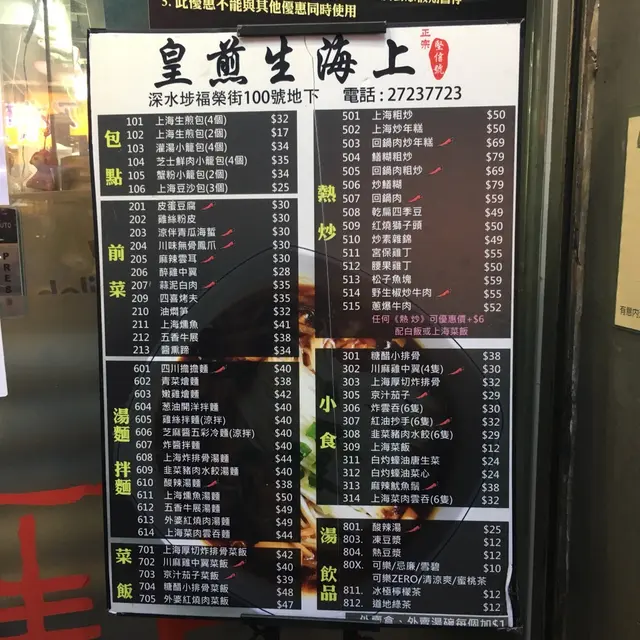 3. 此優惠不能與其他優惠同時使用
皇煎生海上
正宗
堅信號
深水埗福榮街100號地下 電話 : 27237723
包點
101 上海生煎包(4個) $32
102 上海生煎包(2個) $17
103 灌湯小籠包(4個) $34
104 芝士鮮肉小籠包(4個) $35
105 蟹粉小籠包(2個) $34
106 上海豆沙包(3個) $25
前菜
201 皮蛋豆腐 $30
202 雞絲粉皮 $30
203 涼伴青瓜海蜇 $30
204 川味無骨鳳爪 $30
205 麻辣雲耳 $30
206 醉雞中翼 $28
207 蒜泥白肉 $35
209 四喜烤夫 $35
210 油燜笋 $32
211 上海燻魚 $41
212 五香牛展 $38
213 醬熏蹄 $34
湯麵 拌麵
601 四川擔擔麵 $40
602 青菜燴麵 $38
603 嫩雞燴麵 $42
604 葱油開洋拌麵 $40
605 雞絲拌麵(涼拌) $40
606 芝麻醬五彩冷麵(涼拌) $40
607 炸醬拌麵 $40
608 上海炸排骨湯麵 $44
609 韭菜豬肉水餃湯麵 $40
610 酸辣湯麵 $38
611 上海燻魚湯麵 $50
612 五香牛展湯麵 $49
613 外婆紅燒肉湯麵 $49
614 上海菜肉雲吞麵 $44
菜飯
701 上海厚切炸排骨菜飯 $42
702 川麻辣雞中翼菜飯 $40
703 京汁茄子菜飯 $39
704 糖醋小排骨菜飯 $48
705 外婆紅燒肉菜飯 $47
熱炒
501 上海粗炒 $50
502 上海炒年糕 $50
503 回鍋肉炒年糕 $69
504 鱔糊粗炒 $79
505 回鍋肉粗炒 $69
506 炒鱔糊 $79
507 回鍋肉 $59
508 乾扁四季豆 $49
509 紅燒獅子頭 $50
510 炒素雜錦 $49
511 宮保雞丁 $55
512 腰果雞丁 $50
513 松子魚塊 $59
514 野生椒炒牛肉 $55
515 蔥爆牛肉 $52
任何《熱 炒》可優惠價+$6
配白飯或上海菜飯
小食
301 糖醋小排骨 $38
302 川麻辣雞中翼(4隻) $30
303 上海厚切炸排骨 $32
305 京汁茄子 $29
306 炸雲吞(6隻) $30
307 紅油抄手(6隻) $32
308 韭菜豬肉水餃(6隻) $29
309 上海菜飯 $12
311 白灼蠔油唐生菜 $24
312 白灼蠔油菜心 $24
313 麻辣魷魚鬚 $38
314 上海菜肉雲吞(6隻) $32
湯 飲品
801. 酸辣湯 $25
803. 凍豆漿 $12
804. 熱豆漿 $12
80X. 可樂/忌廉/雪碧 $10
可樂ZERO/清涼爽/蜜桃茶
811. 冰極檸檬茶 $12
812. 道地綠茶 $12
外賣盒、外賣湯碗每個加$1